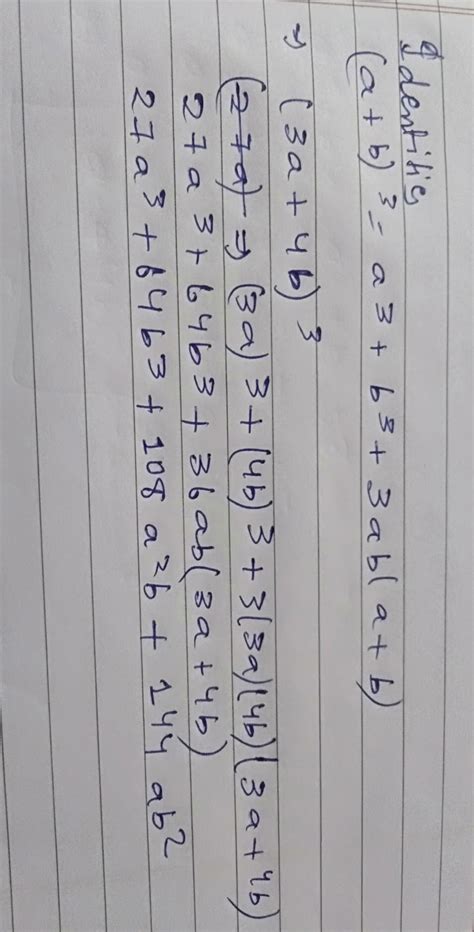 Identities
(a+b)³ = a³ + b³ + 3ab(a+b)
⇒ (3a + 4b)³
(27a) ⇒ (3a)³ + (4b)³ + 3(3a)(4b)(3a+4b)
27a³ + 64b³ + 36ab(3a+4b)
27a³ + 64b³ + 108a²b + 144ab²